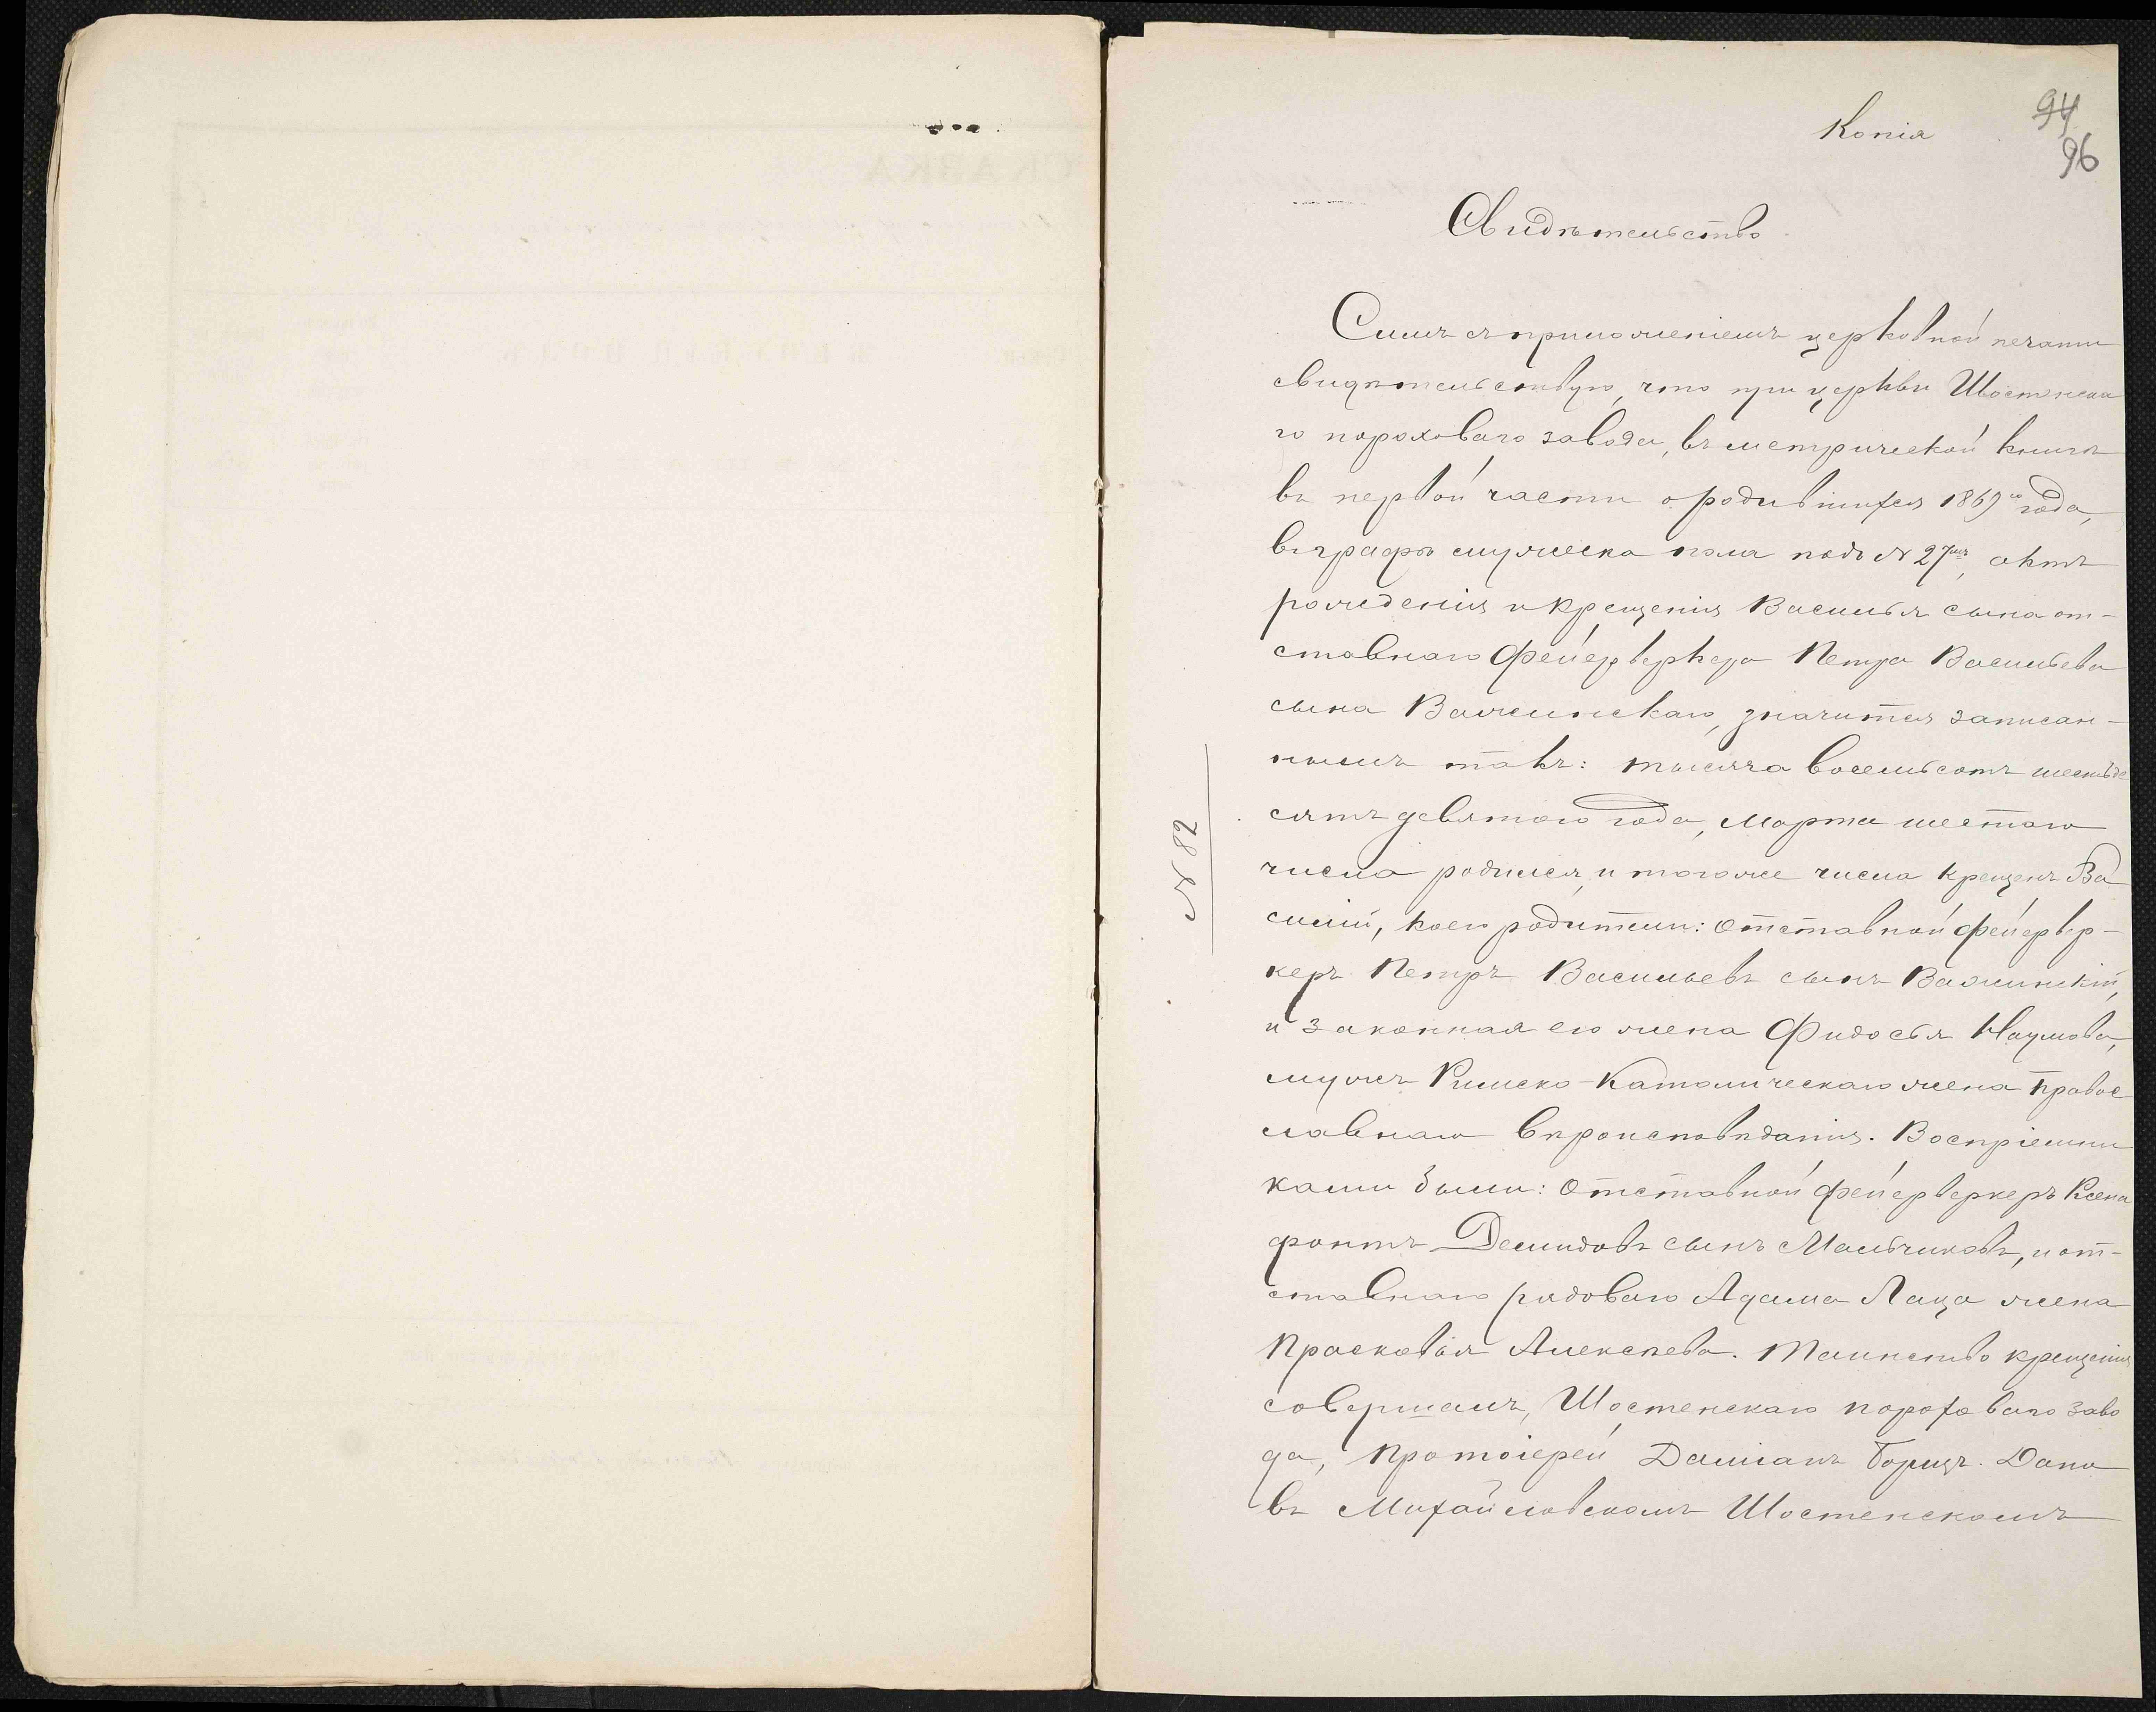 Копія
94
96
Свидѣтельство
Симъ съ приложеніемъ церковной печати
свидѣтельствую, что при церкви Шостенска
го пороховаго завода, въ метрической книгѣ
въ первой части о родившихся 1869го года,
въ графѣ мужеска пола подъ № 27мъ, актъ
рожденія и крещенія Василья сына от-
ставнаго фейерверкера Петра Васильева
сына Важинскаго, значится записан-
нымъ такъ: тысяча восемьсотъ шестьде
сятъ девятого года, Марта шестаго
числа родился, и тогоже числа крещенъ Ва
силій, коего родители: отставной фейервер-
керъ Петръ Васильевъ сынъ Важинскій,
и законная его жена Фидосья Наумова,
мужъ Римско-Католическаго жена Правос
лавнаго вѣроисповѣданія. Воспріемни
ками были: отставной фейерверкеръ Ксено
фонтъ Демидовъ сынъ Мальчиковъ, и от-
ставнаго рядоваго Адама Лаца жена
Прасковья Алексѣева. Таинство крещенія
совершалъ, Шостенскаго пороховаго заво
да, Протоіерей Даміанъ Борщъ. Дано
въ Михайловскомъ Шостенскомъ
№ 82